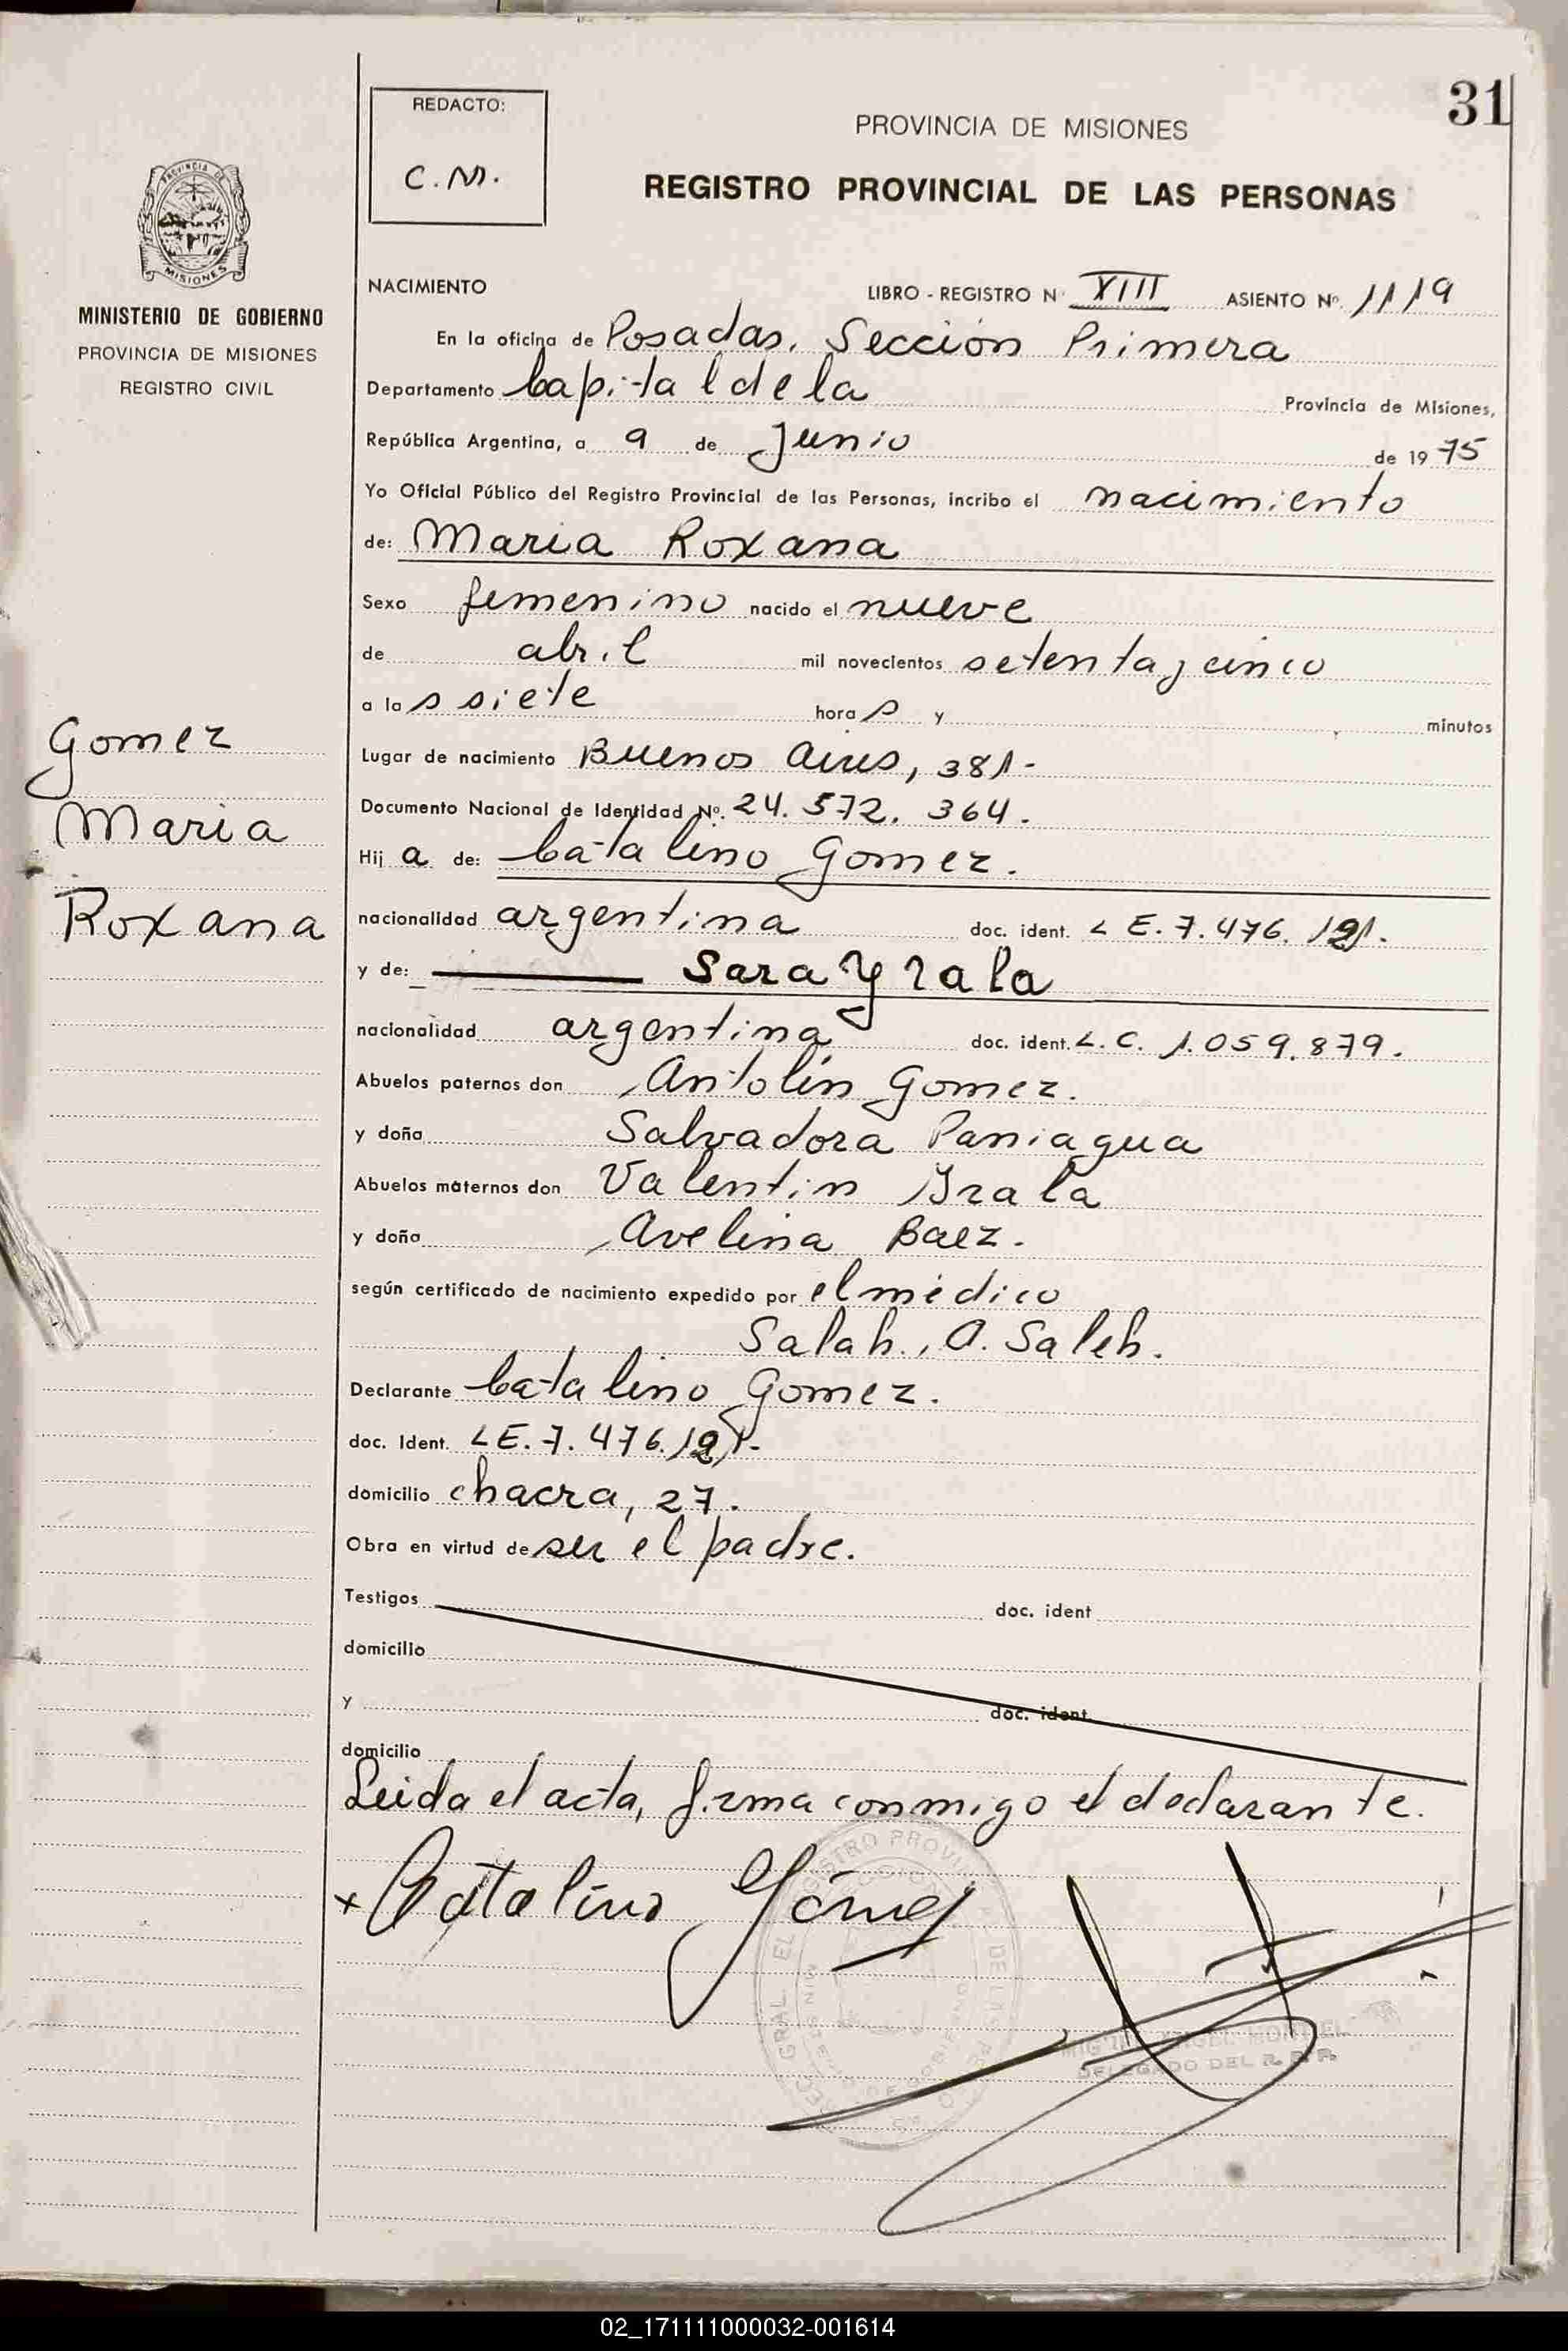 31
REDACTO:
C.M.
PROVINCIA DE MISIONES
REGISTRO PROVINCIAL DE LAS PERSONAS
PROVINCIA DE
MISIONES
MINISTERIO DE GOBIERNO
PROVINCIA DE MISIONES
REGISTRO CIVIL
NACIMIENTO LIBRO - REGISTRO Nº XIII ASIENTO Nº. 1119
En la oficina de Posadas, Sección Primera
Departamento Capital de la Provincia de Misiones,
República Argentina, a 9 de Junio de 1975
Yo Oficial Público del Registro Provincial de las Personas, incribo el nacimiento
de: Maria Roxana
Sexo femenino nacido el nueve
de abril mil novecientos setenta y cinco
a las siete horas y minutos
Gomez
Maria
Roxana
Lugar de nacimiento Buenos Aires, 381-
Documento Nacional de Identidad Nº. 24.572.364.
Hija de: Catalino Gomez.
nacionalidad argentina doc. ident. L E. 7.476.121.
y de: Sara Yrala
nacionalidad argentina doc. ident. L.C. 1.059.879.
Abuelos paternos don Antolin Gomez.
y doña Salvadora Paniagua
Abuelos maternos don Valentin Yrala
y doña Avelina Baez.
según certificado de nacimiento expedido por el médico
Salah., A. Saleh.
Declarante Catalino Gomez.
doc. Ident. LE. 7.476.121-
domicilio chacra, 27.
Obra en virtud de ser el padre.
Testigos doc. ident
domicilio
y doc. ident
domicilio
Leida el acta, firma conmigo el declarante.
x Catalino Gómez
DELEGADO DEL R. P. P.
02_171111000032-001614